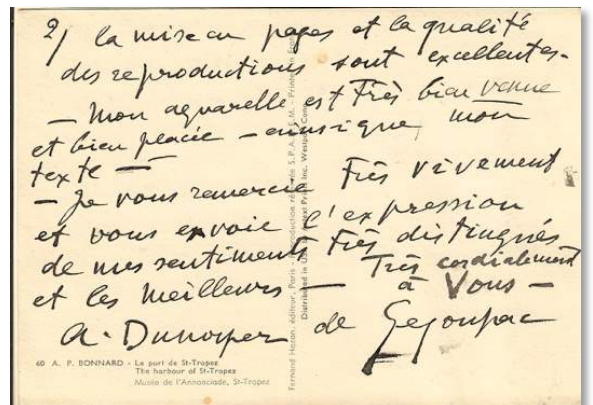 2) la mise en pages et la qualité
des reproductions sont excellentes.
— Mon aquarelle est Très bien venue
et bien placée — ainsi que mon
texte —
— Je vous remercie Très vivement
et vous envoie l'expression
de mes sentiments très distingués
et les meilleurs — Très cordialement
à Vous —
A. Dunoyer de Segonzac
60 A. P. BONNARD - Le port de St-Tropez
The harbour of St-Tropez
Musée de l'Annonciade, St-Tropez
Fernand Hazan, éditeur, Paris - Reproduction réservée S.P.A.D.E.M. - Printed in
Distributed in U.S. Inc. Westport Conn.